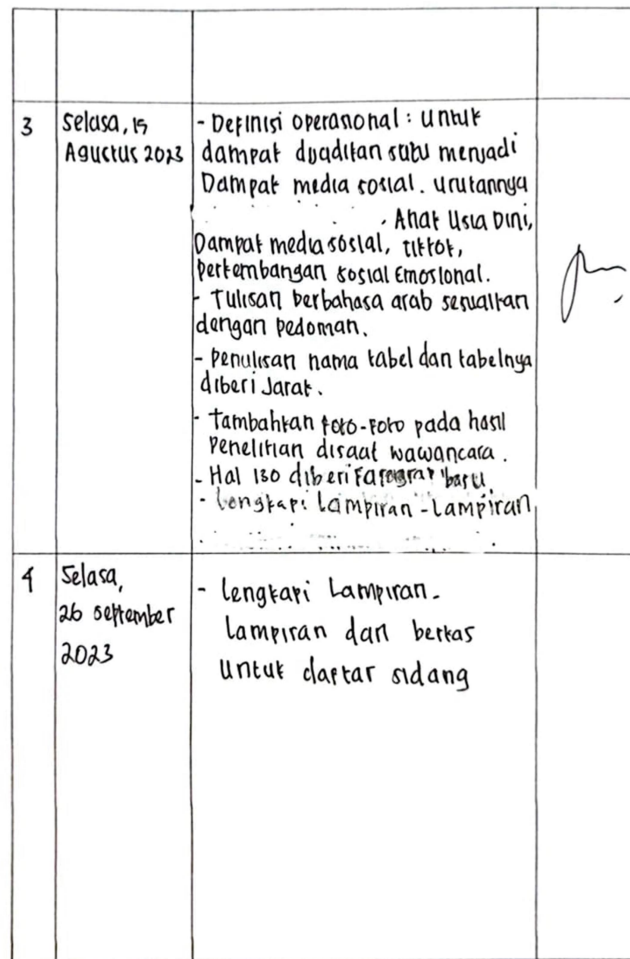 3
Selasa, 15
Agustus 2023
- Definisi operasional : untuk
dampak dijadikan satu menjadi
Dampak media sosial. urutannya
Anak Usia Dini,
Dampak media sosial, tiktok,
perkembangan sosial Emosional.
- Tulisan berbahasa arab sesuaikan
dengan pedoman.
- penulisan nama tabel dan tabelnya
diberi Jarak.
- Tambahkan foto-foto pada hasil
penelitian disaat wawancara.
- Hal 130 diberi Paragraf baru.
- Lengkapi Lampiran-Lampiran
4
Selasa,
26 september
2023
- Lengkapi Lampiran-
Lampiran dan berkas
untuk daftar sidang